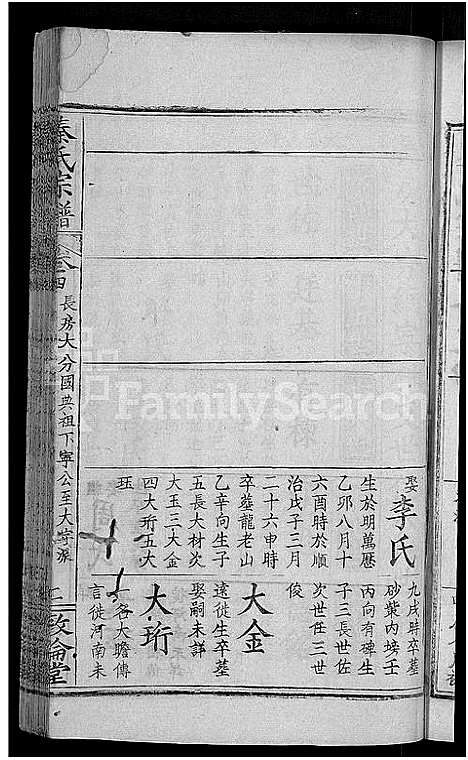 娶李氏
生於明萬歷
乙卯八月十
六酉時於順
治戊子三月
二十六申時
卒葬龍老山
乙辛向生子
五長大材次
大玉三大金
四大珩五大
珏
九戌時卒葬
砂葉內塝壬
丙向有碑生
子三長世佐
次世任三世
俊
大金
遠徙生卒墓
娶嗣未詳
大珩
一名大瞻傳
言徙河南未
秦氏宗譜
卷四
長房大分國典祖下寧公至大字派
敦倫堂
FamilySearch